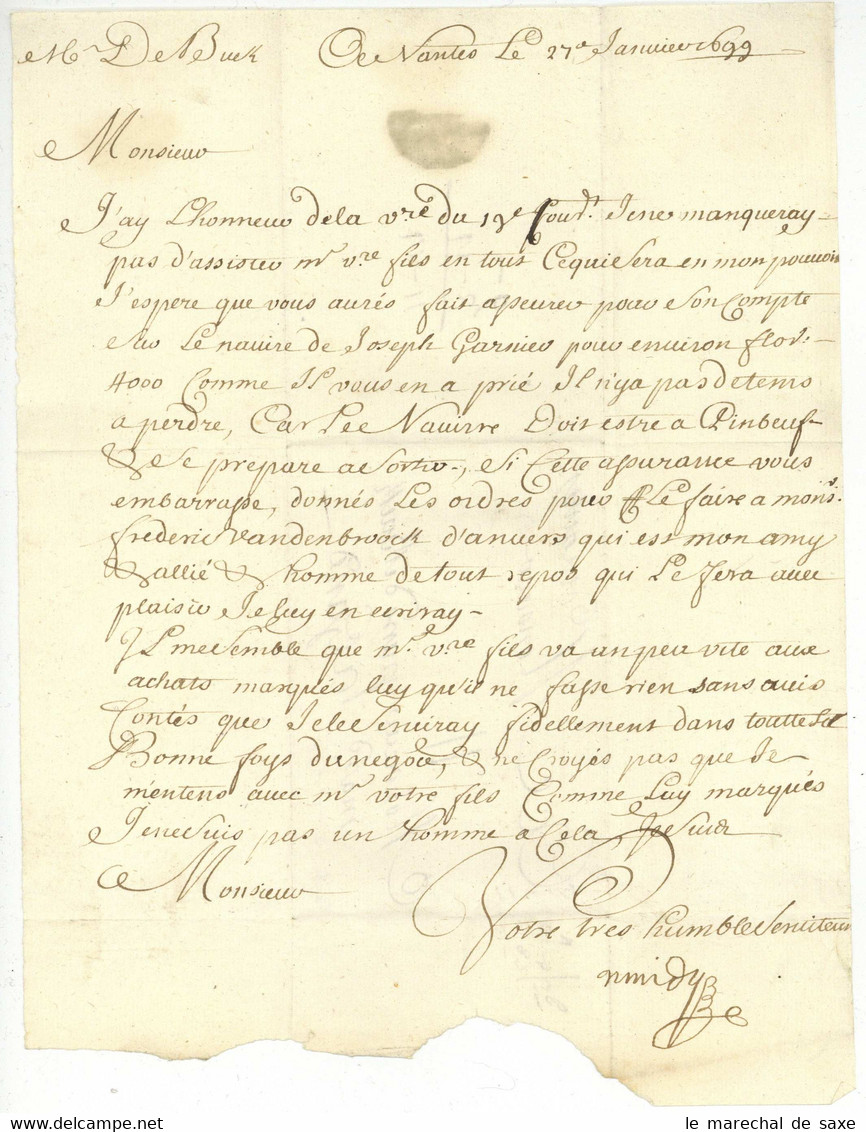 Mr. De Buck De Nantes Le 27e Janvier 1699
Monsieur
J'ay L'honneur de la vre du 19e Cour.t Je ne manqueray
pas d'assister mr vre fils en tout Ce qui sera en mon pouvoir
J'espere que vous aurés fait asseurer pour son Compte
sur Le navire de Joseph Garnier pour environ flor.
4000 Comme Il vous en a prié Il n'ya pas de tems
a perdre, Car Le Navirre Doit estre a Pinbeuf
& se prepare a sortir, si Cette assurance vous
embarrasse, donnés Les ordres pour Le faire a mons.r
frederic vandenbroock d'anvers qui est mon amy
& allié & homme de tout repos qui Le fera avec
plaisir Je luy en ecriray
Il me semble que mr. vre fils va un peu vite aux
achats marqués luy qu'il ne fasse rien sans avis
Contés que Je le serviray fidellement dans toutte la
Bonne foys du negoce, & ne Croyés pas que Je
m'entens avec mr votre fils Comme Luy marqués
Je ne suis pas un homme a Cela Je suis
Monsieur
Votre tres humble serviteur
le marechal de saxe